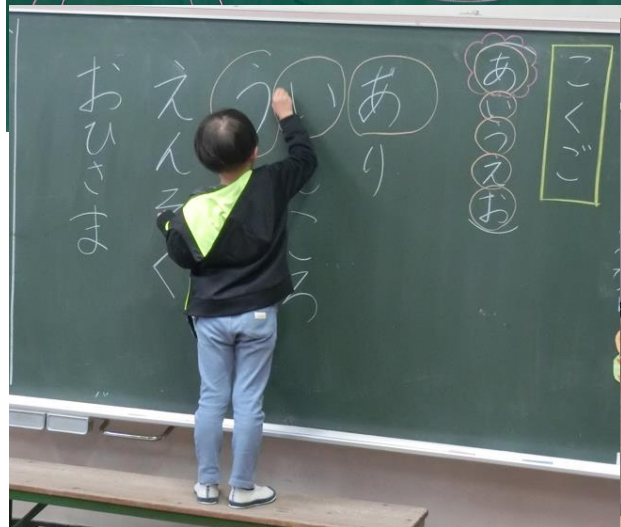 こくご
あいうえお
あり
い
う
えんそく
おひさま